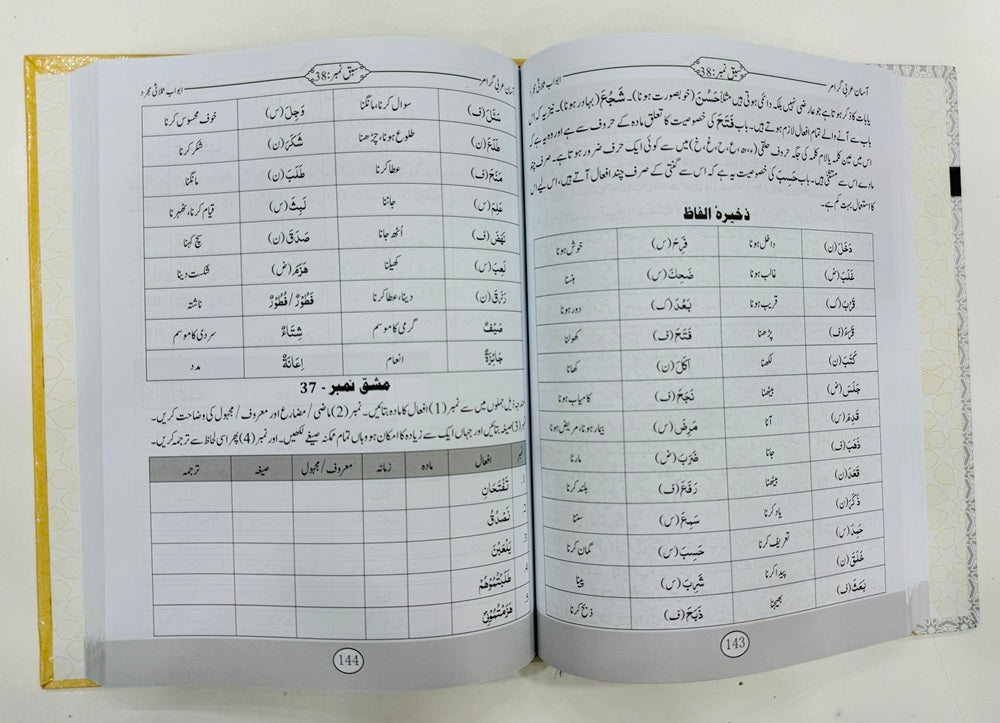 آسان عربی گرامر
سبق نمبر: 38
ابواب ثلاثی مجرد
یا بات کا ذکر ہوتا ہے جو عارضی نہیں بلکہ دائمی ہوتی ہیں مثلاً حَسُنَ (خوبصورت ہونا)۔ شَجُعَ (بہادر ہونا)۔ نیز یہ کہ اس
باب سے آنے والے تمام افعال لازم ہوتے ہیں۔ باب فَتَحَ کی خصوصیت کا تعلق مادہ کے حروف سے ہے اور وہ یہ ہے کہ
اس میں عین کلمہ یا لام کلمہ کی جگہ حروف حلقی (ء، ھ، ع، ح، غ، خ) میں سے کوئی ایک حرف ضرور ہوتا ہے۔ صرف چند
مادے اس سے مستثنیٰ ہیں۔ باب حَسِبَ کی خصوصیت یہ ہے کہ اس سے گنتی کے صرف چند افعال آتے ہیں، اس لیے اس
کا استعمال بہت کم ہے۔
ذخیرۂ الفاظ
دَخَلَ (ن) داخل ہونا فَرِحَ (س) خوش ہونا
غَلَبَ (ض) غالب ہونا ضَحِكَ (س) ہنسنا
قَرُبَ (ک) قریب ہونا بَعُدَ (ک) دور ہونا
قَرَءَ (ف) پڑھنا فَتَحَ (ف) کھولنا
كَتَبَ (ن) لکھنا اَكَلَ (ن) کھانا
جَلَسَ (ض) بیٹھنا نَجَحَ (ف) کامیاب ہونا
قَدِمَ (س) آنا مَرِضَ (س) بیمار ہونا، مریض ہونا
ذَهَبَ (ف) جانا ضَرَبَ (ض) مارنا
قَعَدَ (ن) بیٹھنا رَفَعَ (ف) بلند کرنا
ذَكَرَ (ن) یاد کرنا سَمِعَ (س) سننا
حَمِدَ (س) تعریف کرنا حَسِبَ (س) گمان کرنا
خَلَقَ (ن) پیدا کرنا شَرِبَ (س) پینا
بَعَثَ (ف) بھیجنا ذَبَحَ (ف) ذبح کرنا
143
آسان عربی گرامر
سبق نمبر: 38
ابواب ثلاثی مجرد
سَئَلَ (ف) سوال کرنا، مانگنا وَجِلَ (س) خوف محسوس کرنا
طَلَعَ (ن) طلوع ہونا، چڑھنا شَكَرَ (ن) شکر کرنا
مَنَحَ (ف) عطا کرنا طَلَبَ (ن) مانگنا
عَلِمَ (س) جاننا لَبِثَ (س) قیام کرنا، ٹھہرنا
نَهَضَ (ف) اُٹھ جانا صَدَقَ (ن) سچ کہنا
لَعِبَ (س) کھیلنا هَزَمَ (ض) شکست دینا
رَزَقَ (ن) دینا، عطا کرنا فَطُوْرٌ / فُطُوْرٌ ناشتہ
صَيْفٌ گرمی کا موسم شِتَاءٌ سردی کا موسم
جَائِزَةٌ انعام اِعَانَةٌ مدد
مشق نمبر - 37
ذیل جملوں میں سے نمبر (1) افعال کا مادہ بتائیں۔ نمبر (2) ماضی / مضارع اور معروف / مجہول کی وضاحت کریں۔
(3) صیغہ بتائیں اور جہاں ایک سے زیادہ کا امکان ہو وہاں تمام ممکنہ صیغے لکھیں۔ اور نمبر (4) پھر اسی لحاظ سے ترجمہ کریں۔
افعال مادہ زمانہ معروف / مجہول صیغہ ترجمہ
تَفْتَحَانِ
نَصْدُقُ
يَلْعَبْنَ
4 طَلَبْتُمُوْهُمْ
5 هَزَمْتُمُوْنِيْ
144